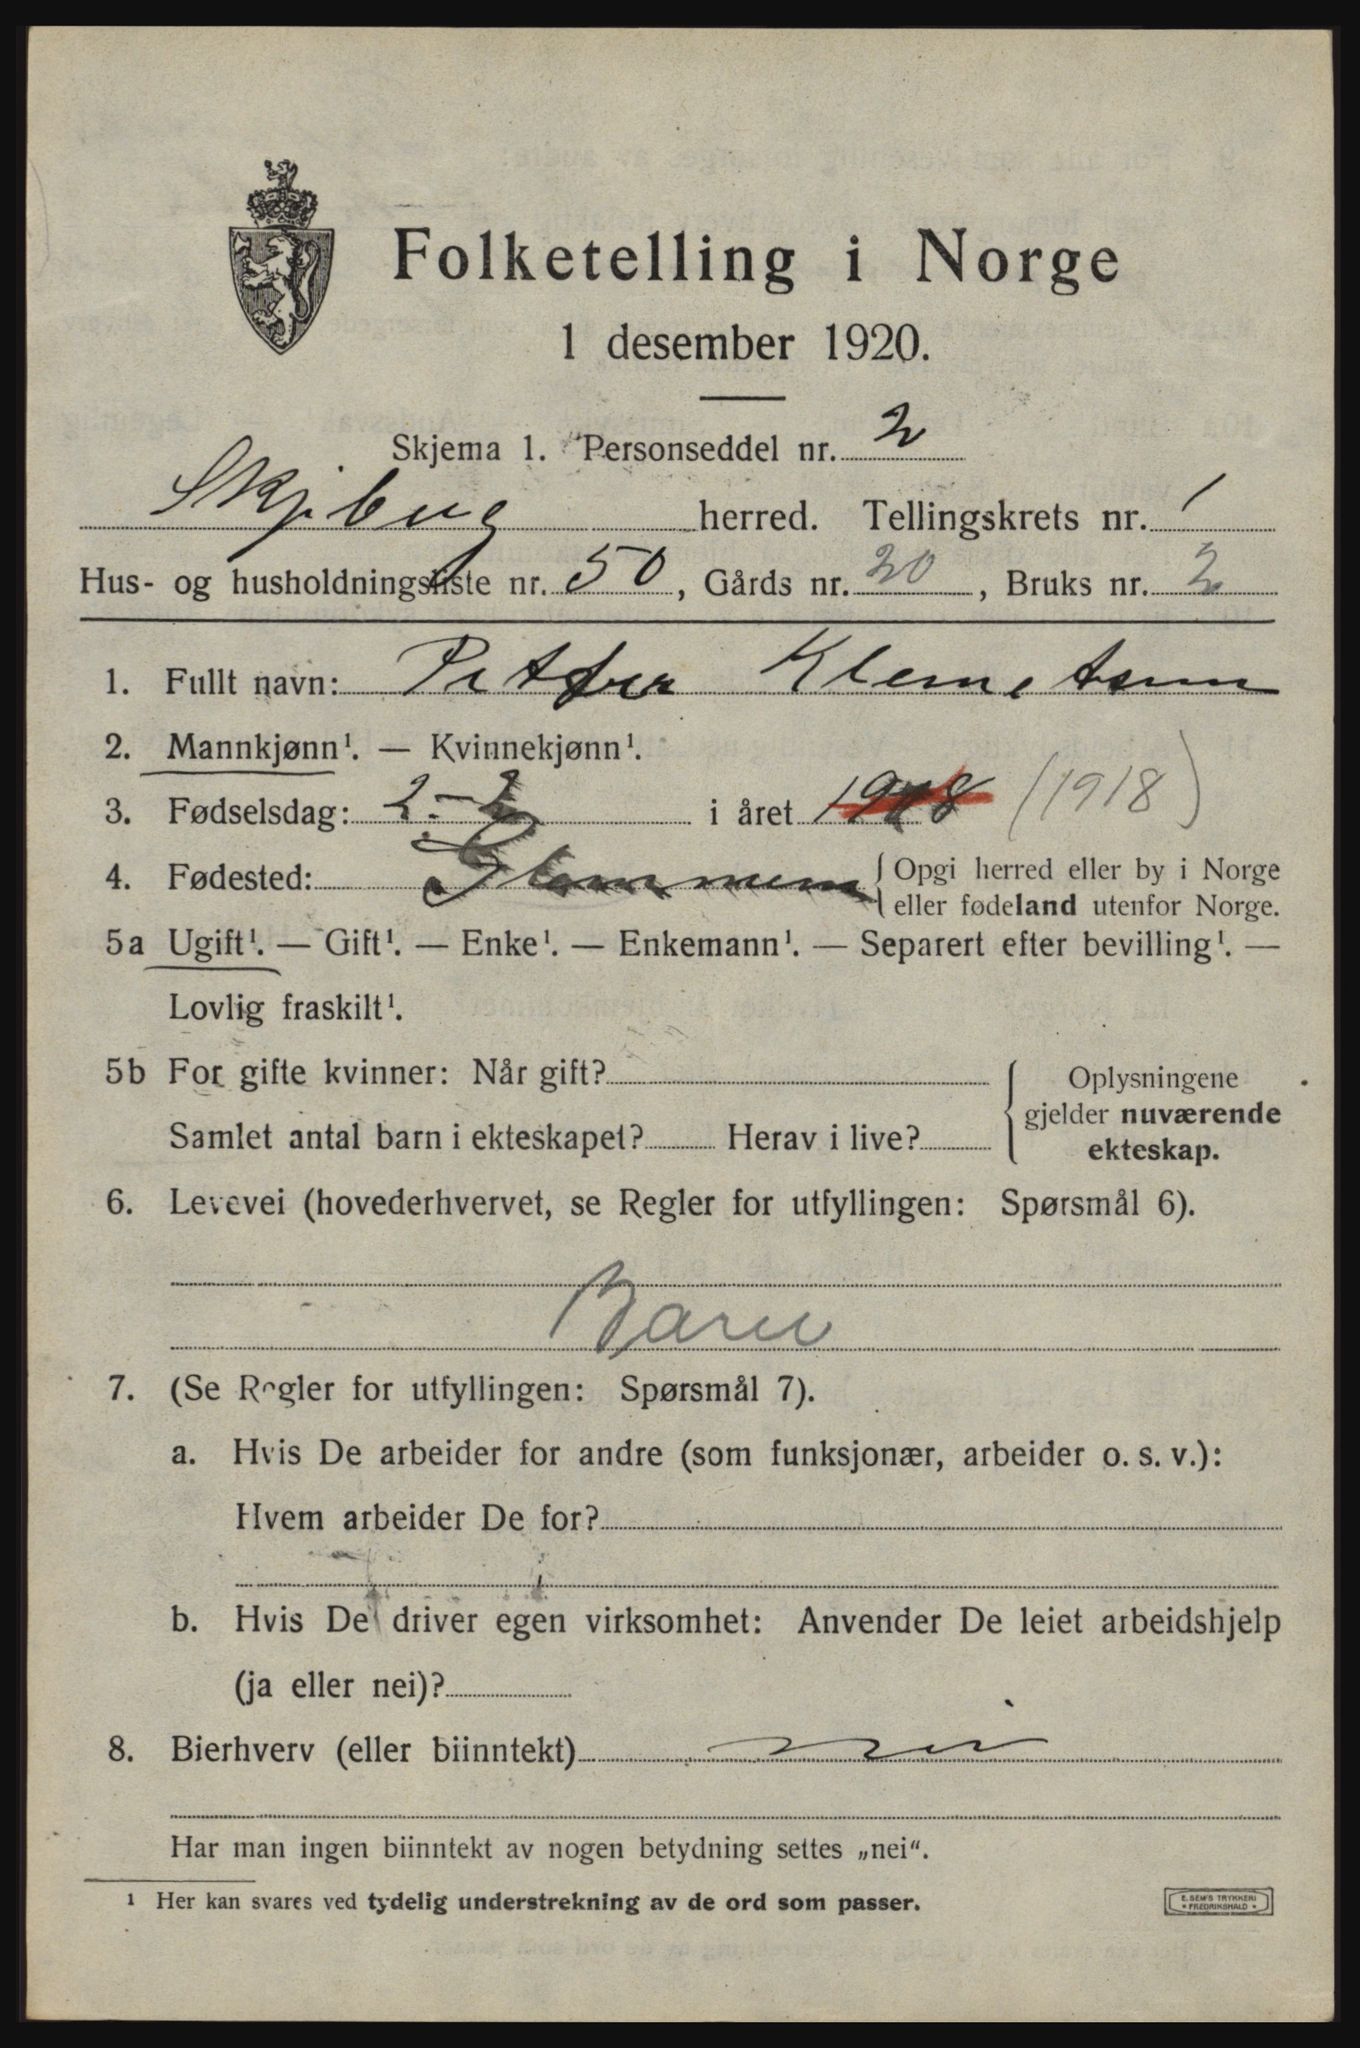 Folketelling i Norge
1 desember 1920.
Skjema 1. Personseddel nr. 2
Skjberg herred. Tellingskrets nr. 1
Hus- og husholdningsliste nr. 50, Gårds nr. 20, Bruks nr. 2
1. Fullt navn: Petter Klemetsen
2. Mannkjønn¹. — Kvinnekjønn¹.
3. Fødselsdag: 2-2 i året 1918 (1918)
4. Fødested: Glemmem { Opgi herred eller by i Norge
eller fødeland utenfor Norge.
5a Ugift¹. — Gift¹. — Enke¹. — Enkemann¹. — Separert efter bevilling¹. —
Lovlig fraskilt¹.
5b For gifte kvinner: Når gift? Oplysningene
gjelder nuværende
Samlet antal barn i ekteskapet? Herav i live? ekteskap.
6. Levevei (hovederhvervet, se Regler for utfyllingen: Spørsmål 6).
Barn
7. (Se Regler for utfyllingen: Spørsmål 7).
a. Hvis De arbeider for andre (som funksjonær, arbeider o. s. v.):
Hvem arbeider De for?
b. Hvis De driver egen virksomhet: Anvender De leiet arbeidshjelp
(ja eller nei)?
8. Bierhverv (eller biinntekt) nei
Har man ingen biinntekt av nogen betydning settes „nei“.
¹ Her kan svares ved tydelig understrekning av de ord som passer.
E. SEM'S TRYKKERI
FREDRIKSHALD